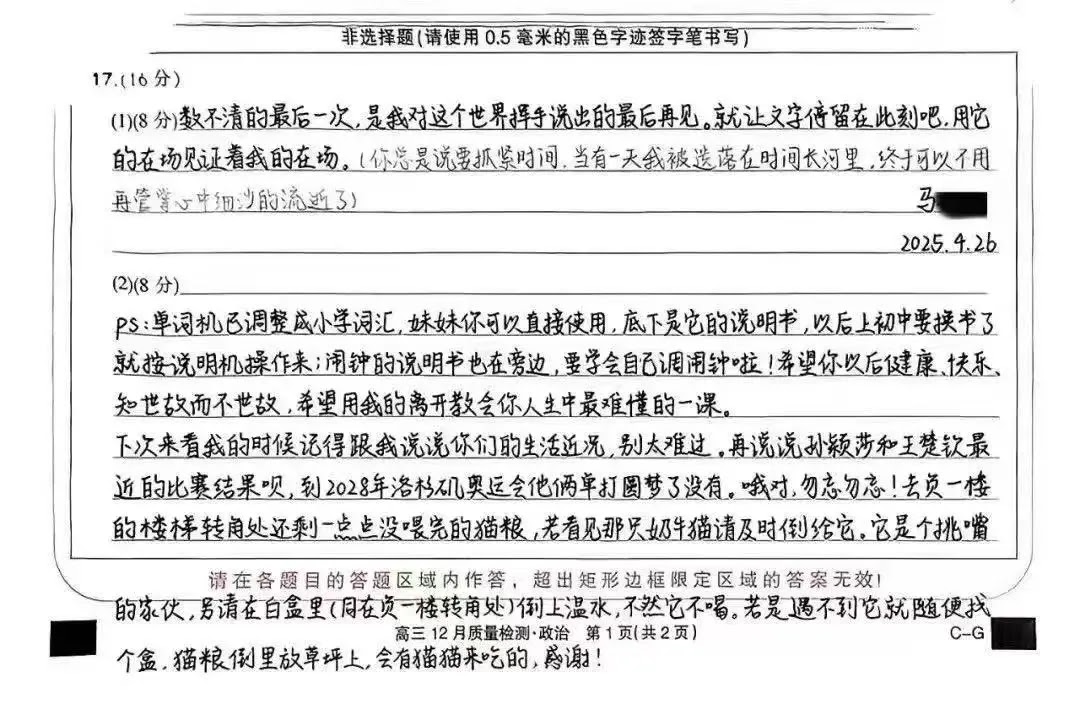 非选择题(请使用 0.5 毫米的黑色字迹签字笔书写)
17.(16 分)
(1)(8 分)数不清的最后一次，是我对这个世界挥手说出的最后再见。就让文字停留在此刻吧，用它
的在场见证着我的在场。(你总是说要抓紧时间，当有一天我被遗落在时间长河里，终于可以不用
再管掌心中细沙的流逝了)
马
2025.4.26
(2)(8 分)
PS:单词机已调整成小学词汇，妹妹你可以直接使用，底下是它的说明书，以后上初中要换书了
就按说明机操作来;闹钟的说明书也在旁边，要学会自己调闹钟啦！希望你以后健康、快乐、
知世故而不世故，希望用我的离开教会你人生中最难懂的一课。
下次来看我的时候记得跟我说说你们的生活近况，别太难过。再说说孙颖莎和王楚钦最
近的比赛结果呗，到2028年洛杉矶奥运会他俩单打圆梦了没有。哦对，勿忘勿忘！去负一楼
的楼梯转角处还剩一点点没喂完的猫粮，若看见那只奶牛猫请及时倒给它。它是个挑嘴
请在各题目的答题区域内作答，超出矩形边框限定区域的答案无效!
的家伙，另请在白盒里(同在负一楼转角处)倒上温水，不然它不喝。若是遇不到它就随便找
高三 12 月质量检测·政治 第 1 页(共 2 页)
C-G
个盒，猫粮倒里放草坪上，会有猫猫来吃的，感谢！